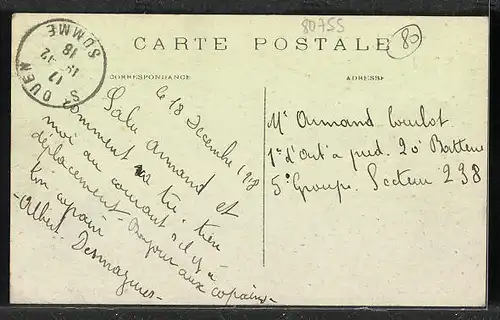 80755
80
CARTE POSTALE
CORRESPONDANCE
ADRESSE
ST OUEN
17
19-12
18
SOMME
le 18 Decembre 1918
Salu Armand et
comment va tu, tien
moi au courant s'il y a
déplacement - Bonjour aux copains -
ton copain
- Albert Desmazures -
Mr Armand Coulot
1er d'Art à pied 20e Batterie
5e Groupe. Secteur 238